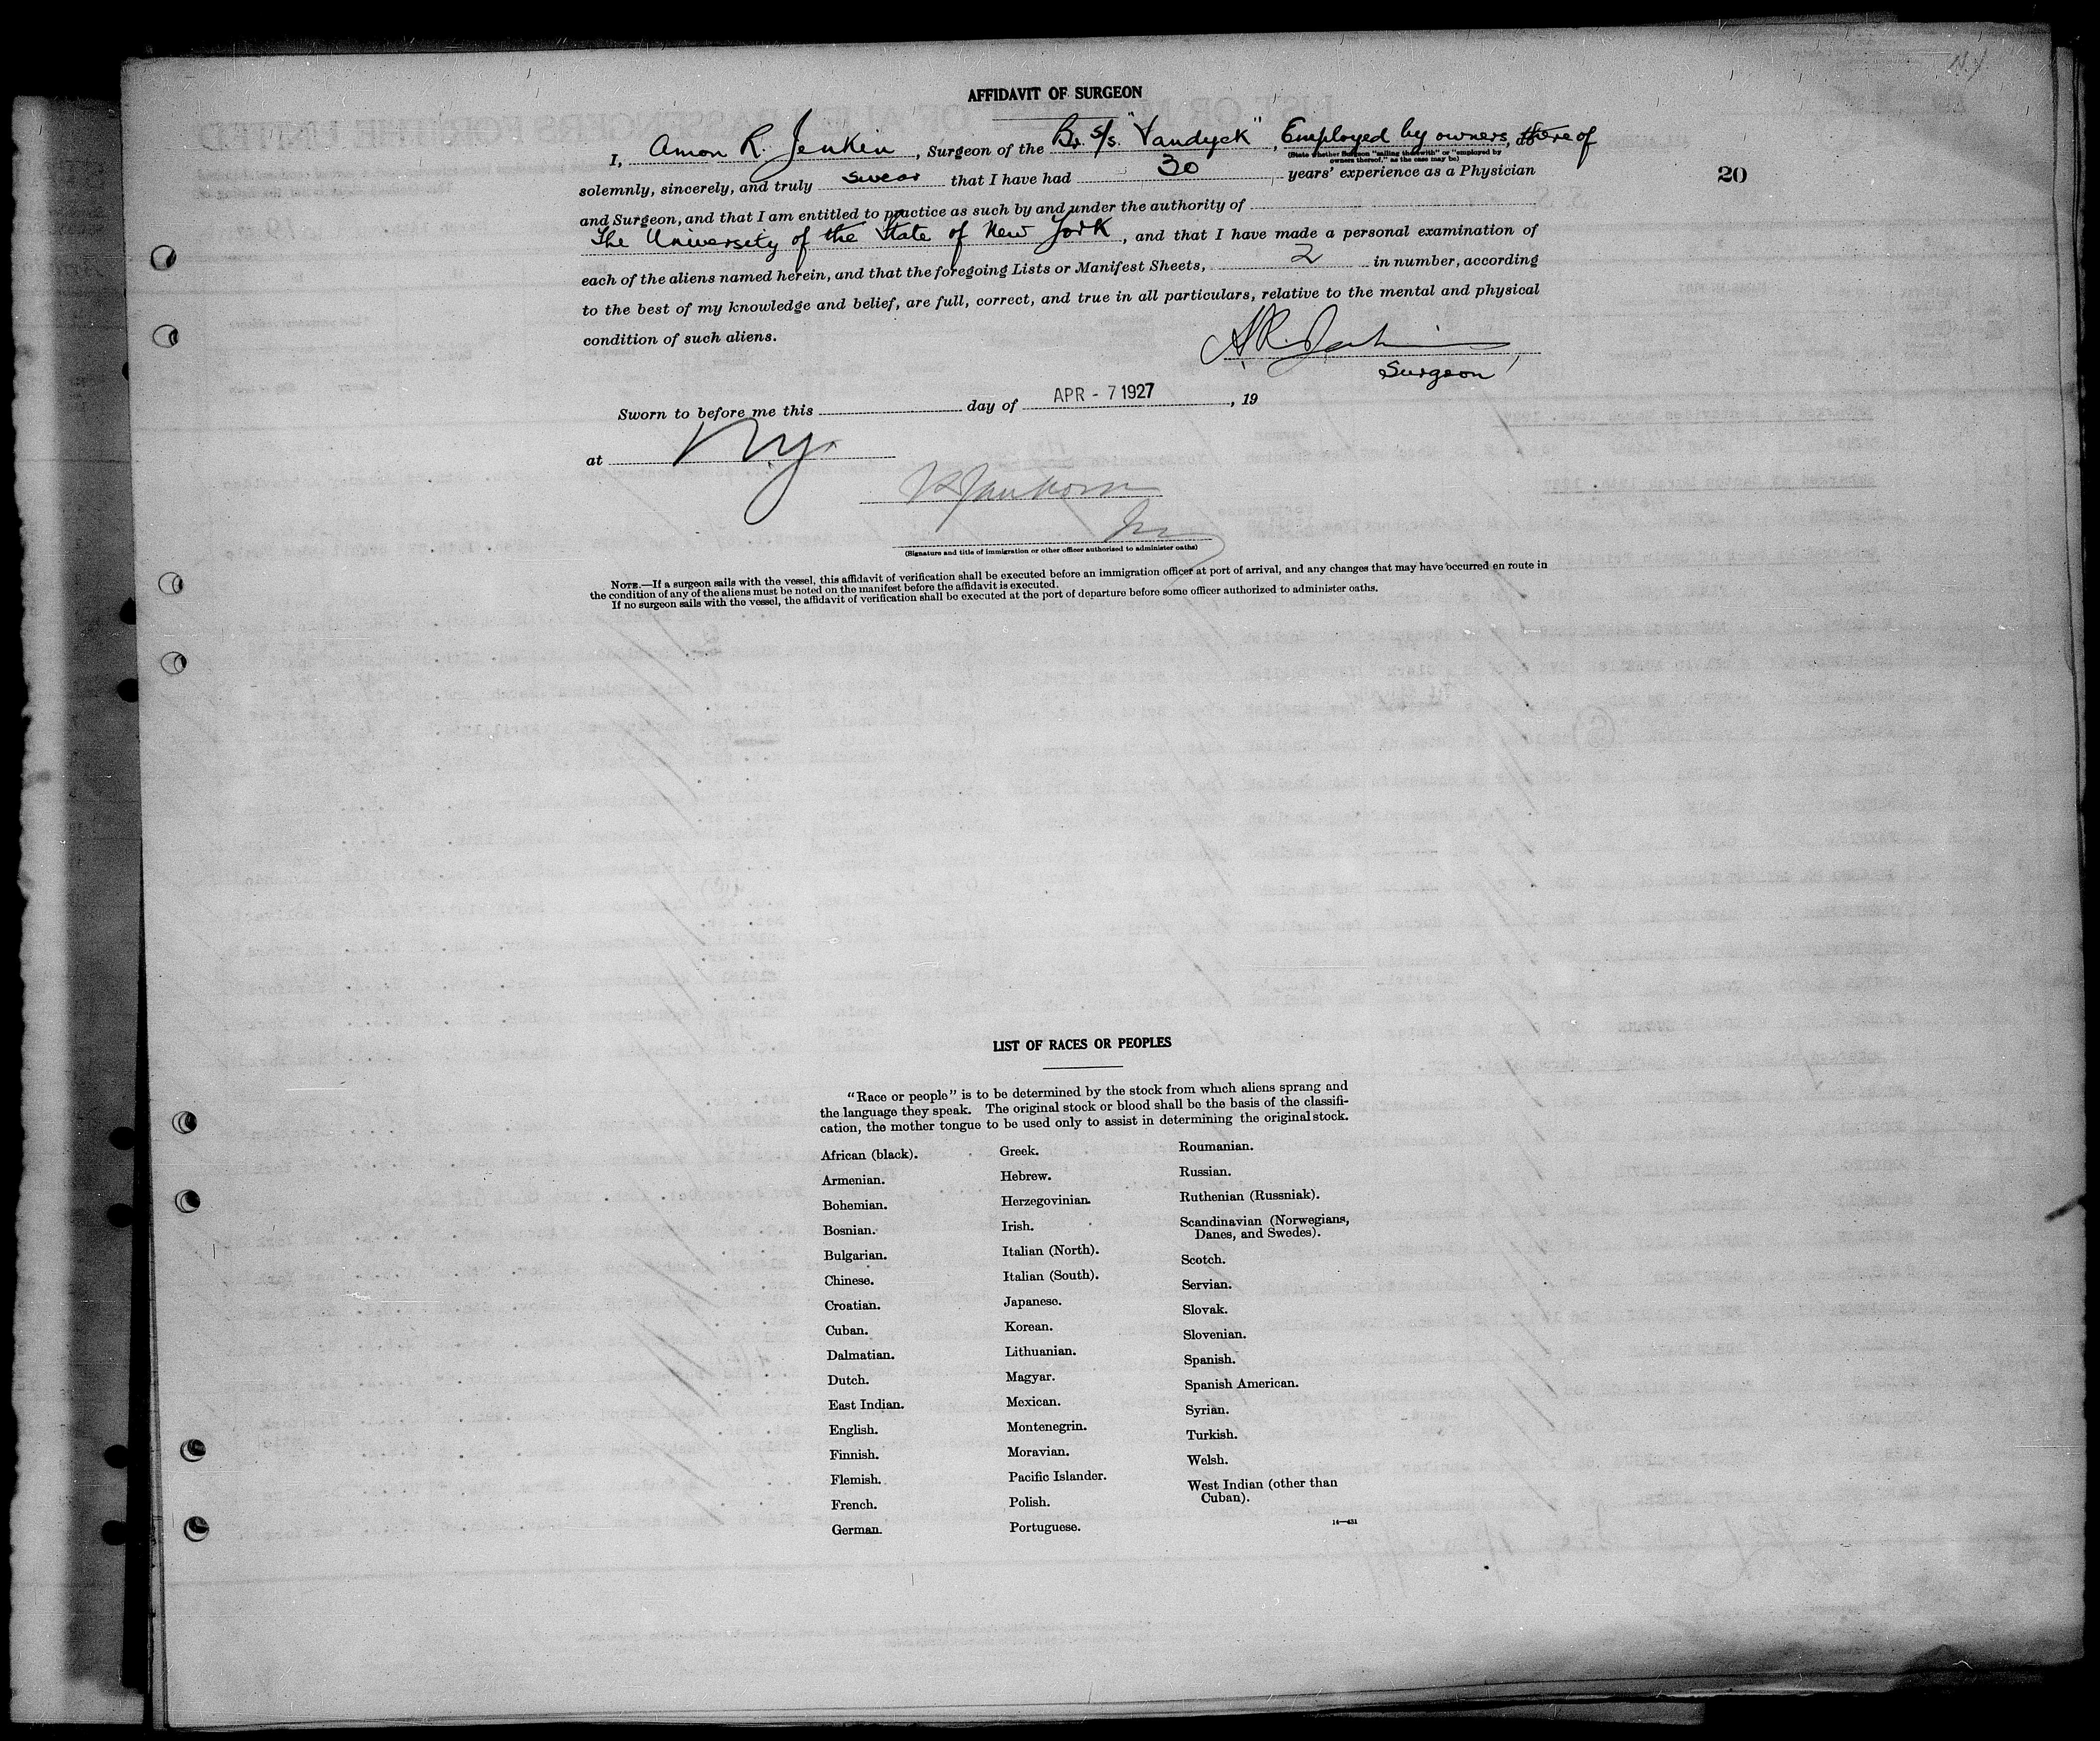 N.Y.
AFFIDAVIT OF SURGEON
I, Amon R. Jenkin, Surgeon of the Br. S/S. "Vandyck", Employed by owners, thereof do
(State whether Surgeon "sailing therewith" or "employed by
owners thereof," as the case may be)
20
solemnly, sincerely, and truly swear that I have had 30 years' experience as a Physician
and Surgeon, and that I am entitled to practice as such by and under the authority of
The University of the State of New York, and that I have made a personal examination of
each of the aliens named herein, and that the foregoing Lists or Manifest Sheets, 2 in number, according
to the best of my knowledge and belief, are full, correct, and true in all particulars, relative to the mental and physical
condition of such aliens.
A R. Jenkin
Surgeon
Sworn to before me this day of APR - 7 1927, 19
at N.Y.
(Signature and title of immigration or other officer authorized to administer oaths)
NOTE.—If a surgeon sails with the vessel, this affidavit of verification shall be executed before an immigration officer at port of arrival, and any changes that may have occurred en route in
the condition of any of the aliens must be noted on the manifest before the affidavit is executed.
If no surgeon sails with the vessel, the affidavit of verification shall be executed at the port of departure before some officer authorized to administer oaths.
LIST OF RACES OR PEOPLES
"Race or people" is to be determined by the stock from which aliens sprang and
the language they speak. The original stock or blood shall be the basis of the classifi-
cation, the mother tongue to be used only to assist in determining the original stock.
African (black).
Armenian.
Bohemian.
Bosnian.
Bulgarian.
Chinese.
Croatian.
Cuban.
Dalmatian.
Dutch.
East Indian.
English.
Finnish.
Flemish.
French.
German.
Greek.
Hebrew.
Herzegovinian.
Irish.
Italian (North).
Italian (South).
Japanese.
Korean.
Lithuanian.
Magyar.
Mexican.
Montenegrin.
Moravian.
Pacific Islander.
Polish.
Portuguese.
Roumanian.
Russian.
Ruthenian (Russniak).
Scandinavian (Norwegians,
Danes, and Swedes).
Scotch.
Servian.
Slovak.
Slovenian.
Spanish.
Spanish American.
Syrian.
Turkish.
Welsh.
West Indian (other than
Cuban).
14—431